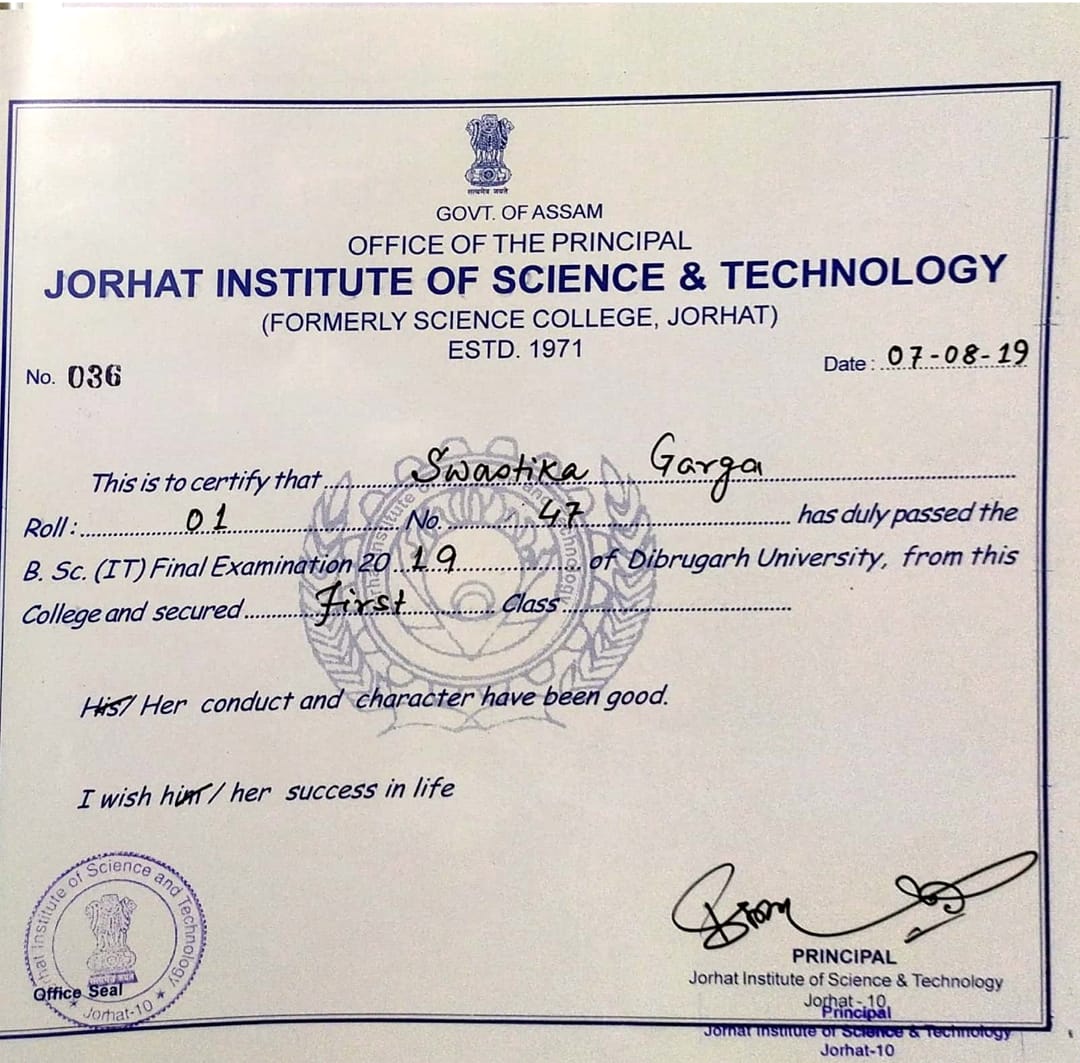 सत्यमेव जयते
GOVT. OF ASSAM
OFFICE OF THE PRINCIPAL
JORHAT INSTITUTE OF SCIENCE & TECHNOLOGY
(FORMERLY SCIENCE COLLEGE, JORHAT)
ESTD. 1971
No. 036
Date : 07-08-19
This is to certify that Swastika Garga
Roll : 01 No. 47 has duly passed the
B. Sc. (IT) Final Examination 20 19 of Dibrugarh University, from this
College and secured First Class
His/ Her conduct and character have been good.
I wish him / her success in life
Jorhat Institute of Science and Technology
Jorhat-10
Office Seal
PRINCIPAL
Jorhat Institute of Science & Technology
Jorhat - 10
Principal
Jorhat Institute of Science & Technology
Jorhat-10